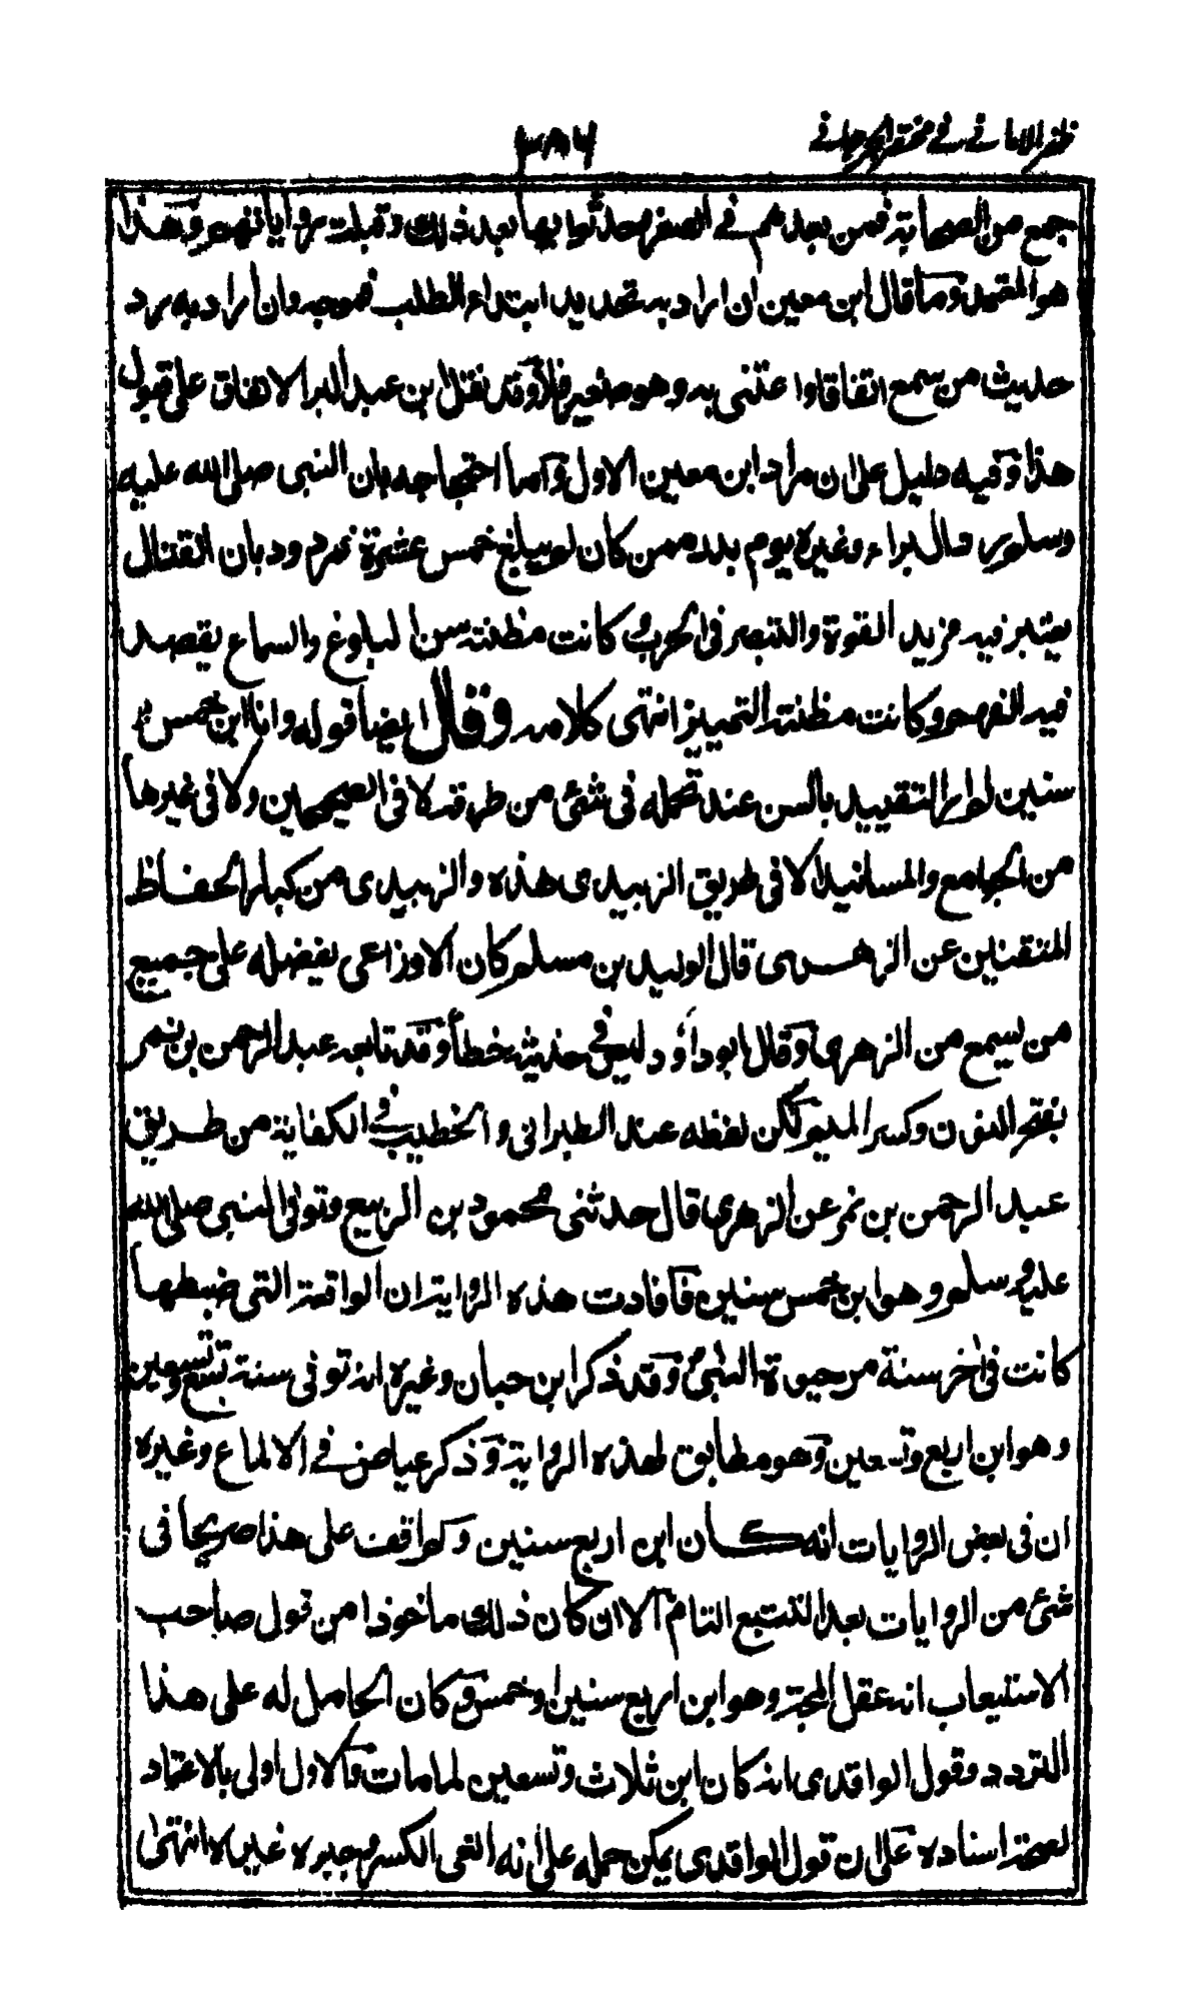 ظفر الاماني في مختصر الجرجاني
٣٨٦
جمع من الصحابة فمن بعدهم في الصغر حدثوا بها بعد ذلك وقبلت رواياتهم وهذا
هو المعتمد وما قال ابن معين ان اراد به تحديد ابتداء الطلب فموجه وان اراد به رد
حديث من سمع اتفاقا او اعتنى به وهو صغير فلا وقد نقل ابن عبد البر الاتفاق على قبول
هذا وفيه دليل على ان مراد ابن معين الاول واما احتجاجه بان النبي صلى الله عليه
وسلم رد البراء وغيره يوم بدر ممن كان لم يبلغ خمس عشرة فمردود بان القتال
يعتبر فيه مزيد القوة والتبصر في الحرب كانت مظنته سن البلوغ والسماع يقصد
فيه الفهم وكانت مظنته التمييز انتهى كلامه وقال ايضا قوله وانا ابن خمس
سنين لم ار التقييد بالسن عند تحمله في شئ من طرقه لا في الصحيحين ولا في غيرها
من الجوامع والمسانيد الا في طريق الزبيدى هذه والزبيدى من كبار الحفاظ
المتقنين عن الزهرى قال الوليد بن مسلم كان الاوزاعى يفضله على جميع
من سمع من الزهرى وقال ابو داؤد ليس في حديثه خطأ وقد تابعه عبد الرحمن بن نمر
بفتح النون وكسر الميم لكن لفظه عند الطبرانى والخطيب في الكفاية من طريق
عبد الرحمن بن نمر عن الزهرى قال حدثنى محمود بن الربيع وتوفى النبى صلى الله
عليه وسلم وهو ابن خمس سنين فافادت هذه الرواية ان الواقعة التى ضبطها
كانت فى اخر سنة من حيوة النبى وقد ذكر ابن حبان وغيره انه توفى سنة تسع وتسعين
وهو ابن اربع وتسعين وهو مطابق لهذه الرواية وذكر عياض في الالماع وغيره
ان فى بعض الروايات انه كان ابن اربع سنين ولم اقف على هذا صريحا فى
شئ من الروايات بعد التتبع التام الا ان كان ذلك ماخوذا من قول صاحب
الاستيعاب انه عقل المجة وهو ابن اربع سنين او خمس وكان الحامل له على هذا
التردد وقول الواقدى انه كان ابن ثلاث وتسعين لما مات والاول اولى بالاعتماد
لصحة اسناده على ان قول الواقدى يمكن حمله على انه الغى الكسر وجبره غيره انتهى